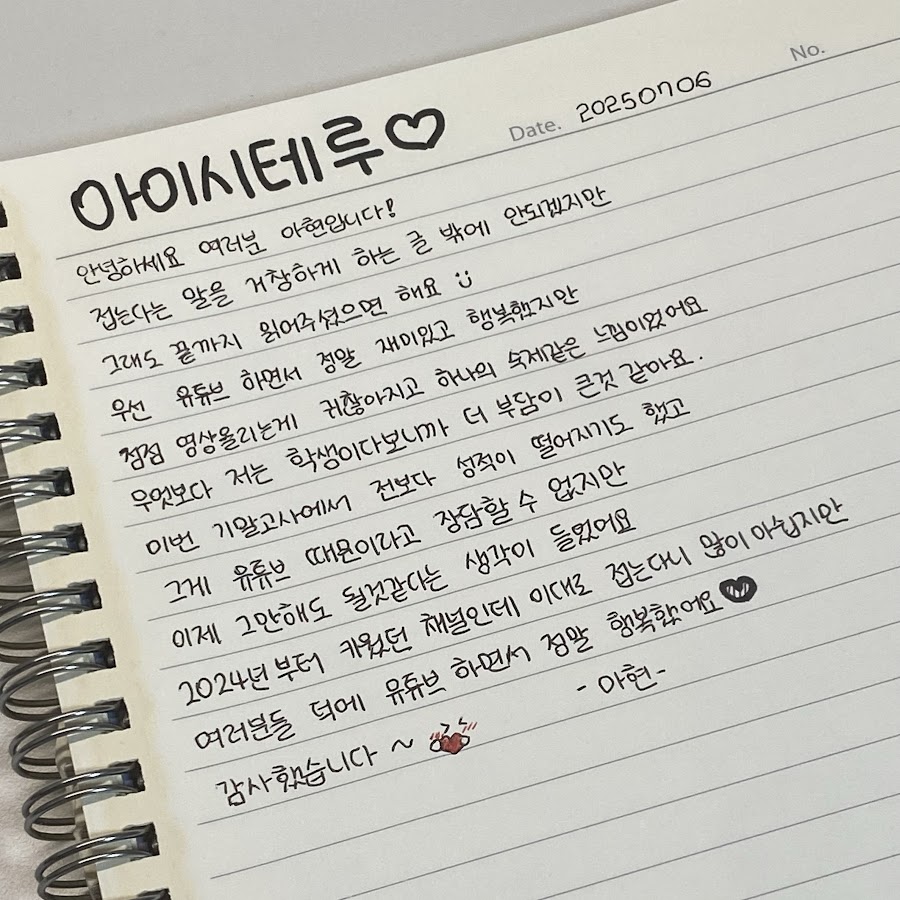 No.
Date. 20250706
아이시테루♡
안녕하세요 여러분 아현입니다!
접는다는 말을 거창하게 하는 글 밖에 안되겠지만
그래도 끝까지 읽어주셨으면 해요 :)
우선 유튜브 하면서 정말 재미있고 행복했지만
점점 영상올리는게 귀찮아지고 하나의 숙제같은 느낌이었어요
무엇보다 저는 학생이다보니까 더 부담이 큰것 같아요.
이번 기말고사에서 전보다 성적이 떨어지기도 했고
그게 유튜브 때문이라고 장담할 수 없지만
이제 그만해도 될것같다는 생각이 들었어요
2024년부터 키웠던 채널인데 이대로 접는다니 많이 아쉽지만
여러분들 덕에 유튜브 하면서 정말 행복했어요♥
감사했습니다 ~
- 아현-